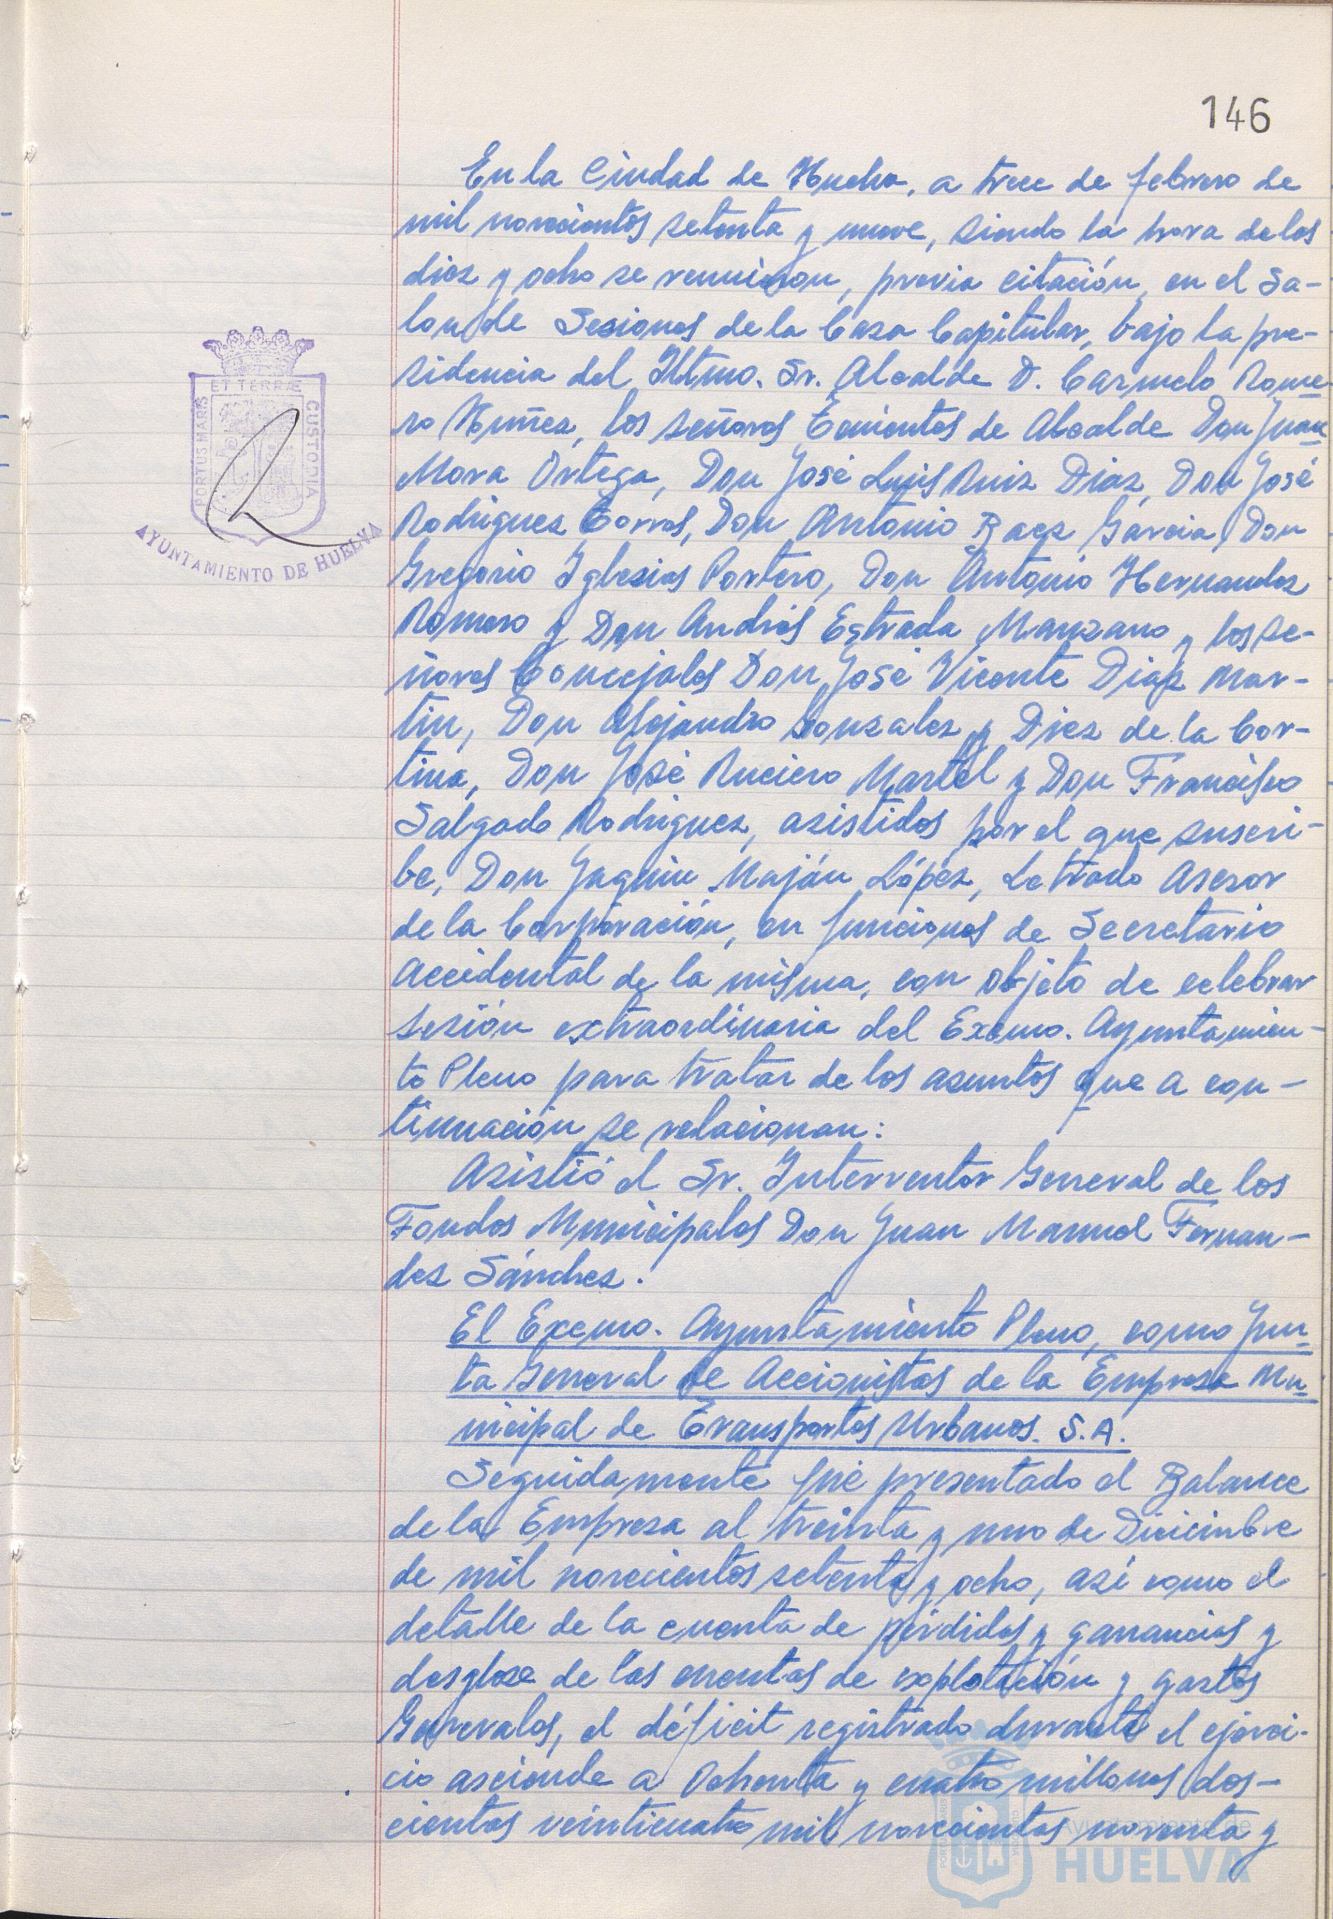 146
En la Ciudad de Huelva, a trece de febrero de
mil novecientos setenta y nueve, siendo la hora de los
diez y ocho se reunieron, previa citación, en el Sa-
lon de Sesiones de la Casa Capitular, bajo la pre-
sidencia del Iltmo. Sr. Alcalde D. Carmelo Rome-
ro Nuñez, los señores Tenientes de Alcalde Don Juan
Mora Ortega, Don José Luis Ruiz Diaz, Don José
Rodriguez Torres, Don Antonio Baez Garcia, Don
Gregorio Iglesias Portero, Don Antonio Hernandez
Romero y Don Andrés Estrada Manzano y los se-
ñores Concejales Don José Vicente Diaz Mar-
tin, Don Alejandro Gonzalez y Diez de la Cor-
tina, Don José Ruciero Martel y Don Francisco
Salgado Rodriguez, asistidos por el que suscri-
be, Don Jaquin Maján López, Letrado Asesor
de la Corporación, en funciones de Secretario
Accidental de la misma, con objeto de celebrar
sesión extraordinaria del Excmo. Ayuntamien-
to Pleno para tratar de los asuntos que a con-
tinuación se relacionan:
Asistió el Sr. Interventor General de los
Fondos Municipales Don Juan Manuel Fernan-
dez Sánchez.
El Excmo. Ayuntamiento Pleno, como Jun-
ta General de Accionistas de la Empresa Mu-
nicipal de Transportes Urbanos. S.A.
Seguidamente fué presentado el Balance
de la Empresa al treinta y uno de Diciembre
de mil novecientos setenta y ocho, así como el
detalle de la cuenta de pérdidas y ganancias y
desglose de las cuentas de explotación y gastos
Generales, el déficit registrado durante el ejerci-
cio asciende a ochenta y cuatro millones dos-
cientos veinticuatro mil novecientos noventa y
PORTUS MARIS
ET TERRÆ
CUSTODIA
AYUNTAMIENTO DE HUELVA
Ayuntamiento de
HUELVA